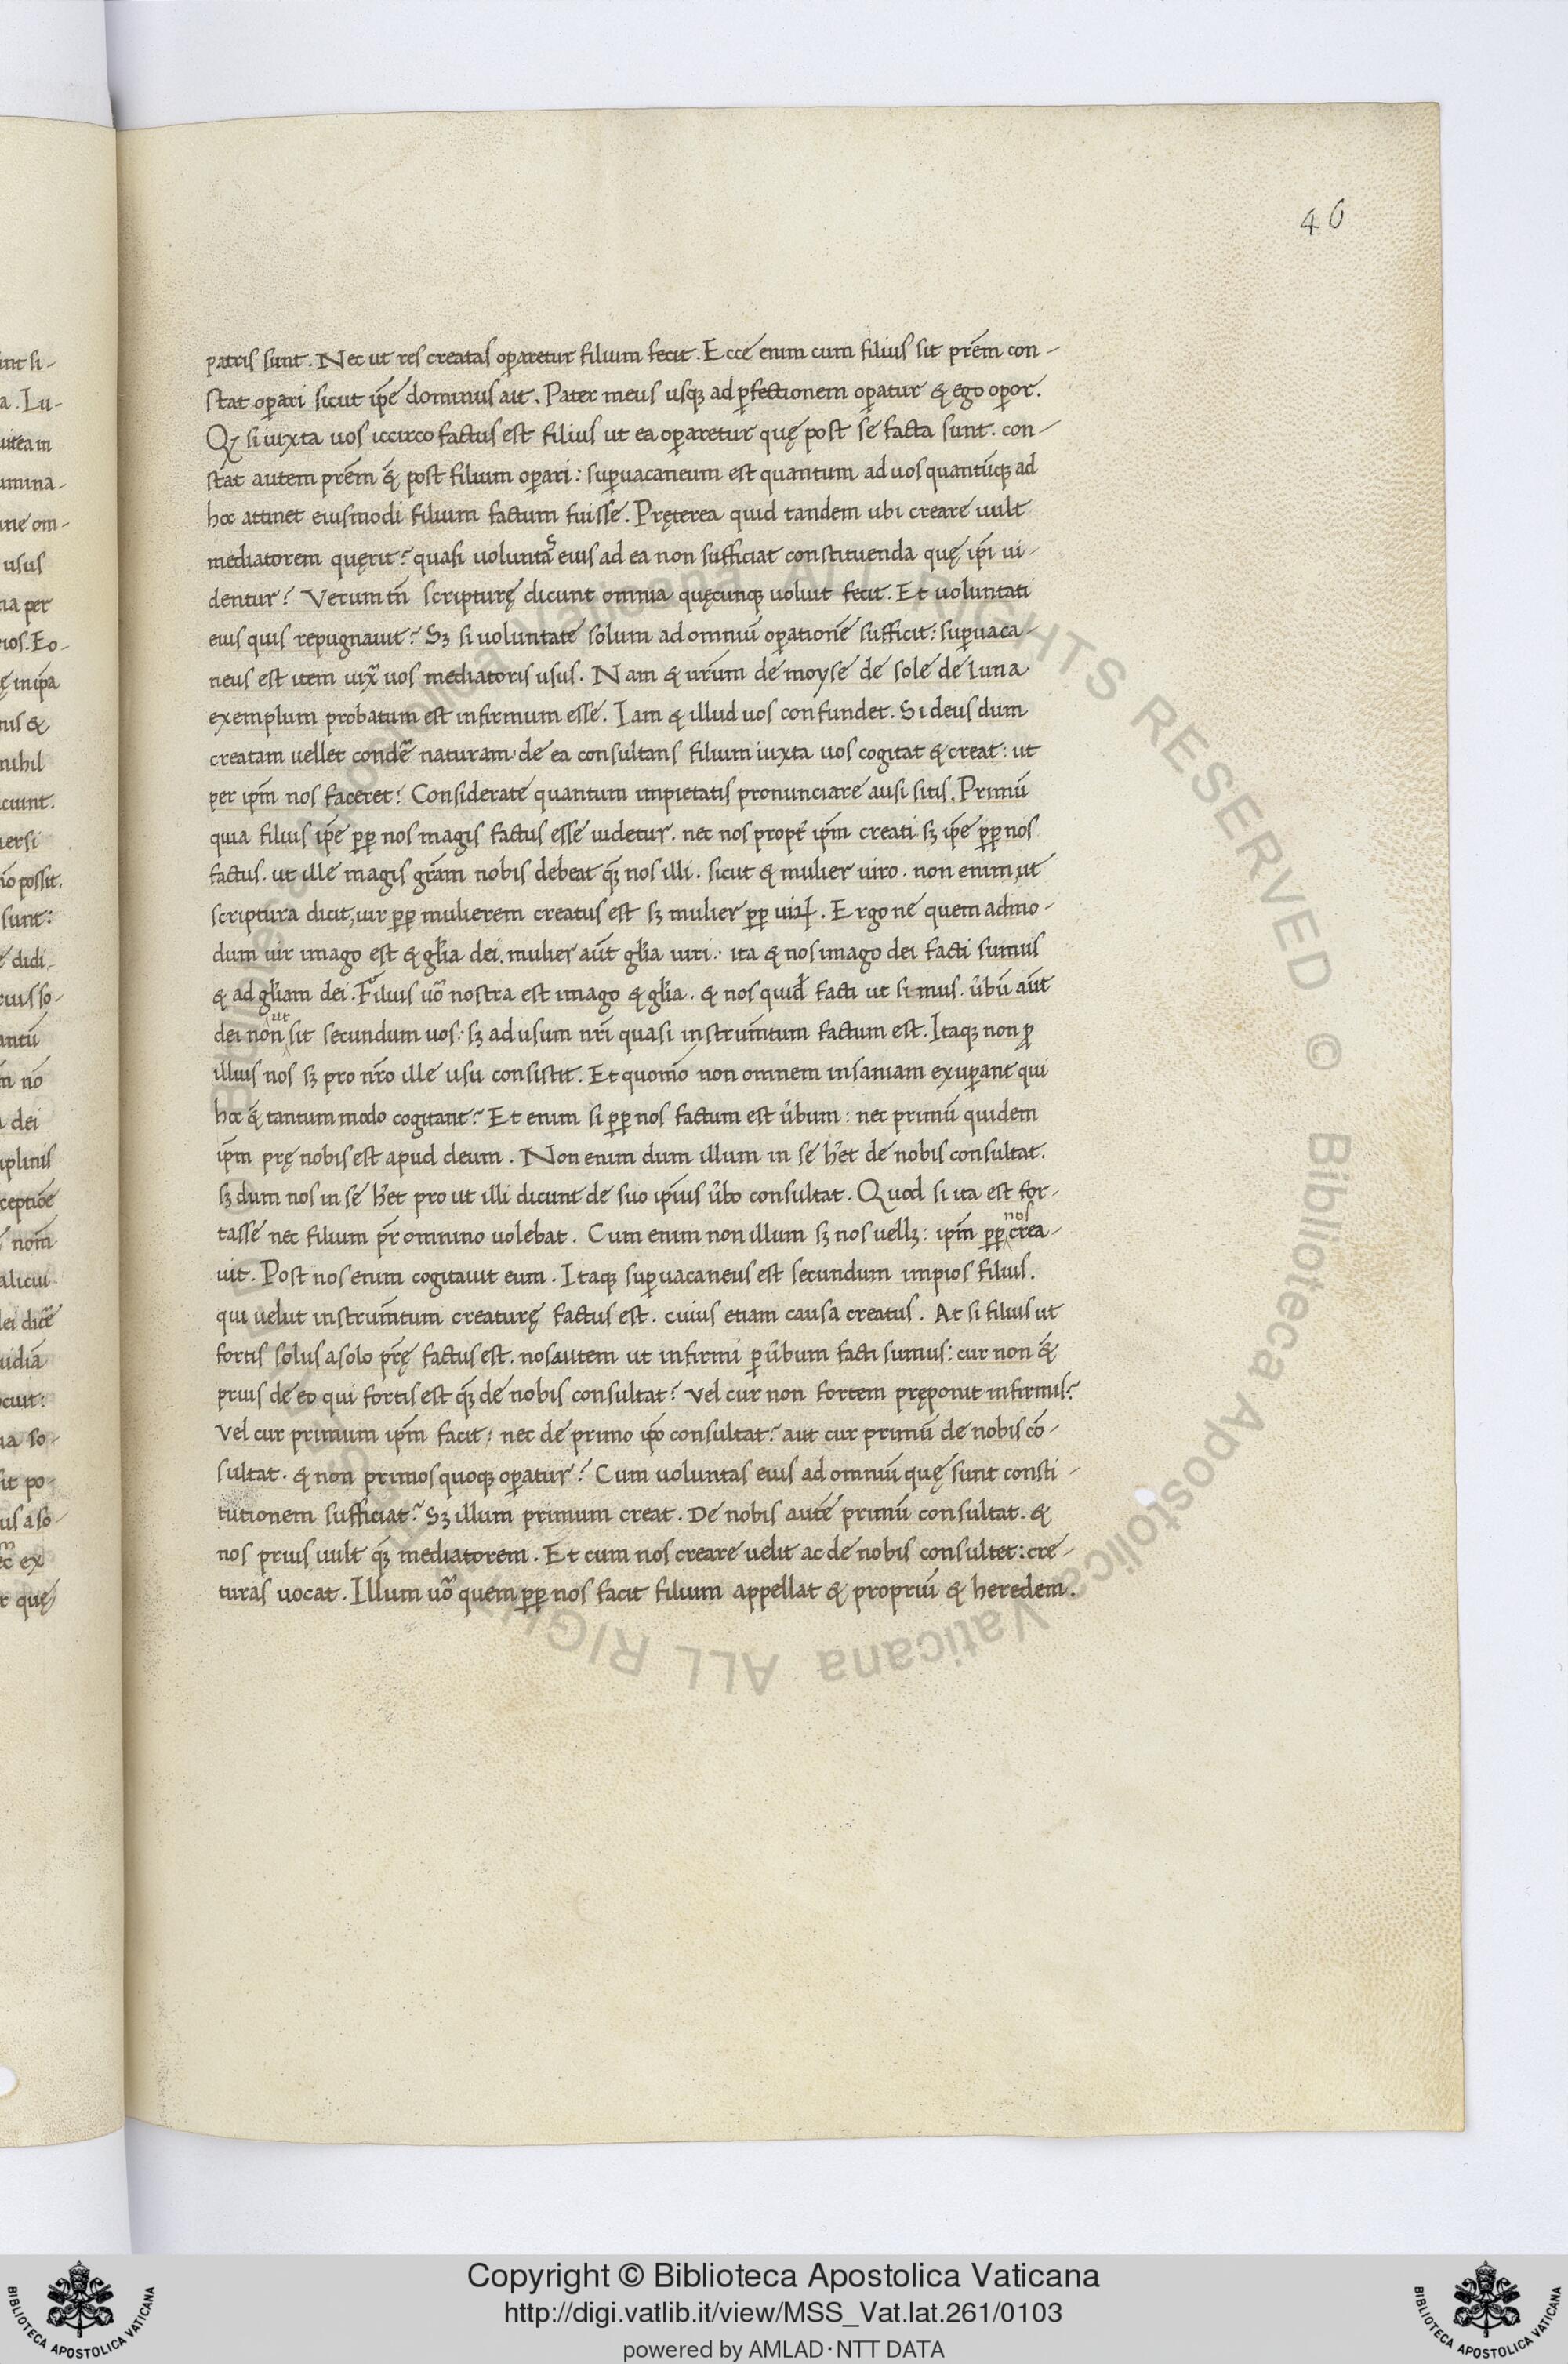 46
patris sunt. Nec ut res creatas oꝑaretur filium fecit. Ecce enim cum filius sit prēm con-
stat oꝑari sicut ip̄e dominus ait. Pater meus usqꝫ ad ꝑfectionem oꝑatur & ego oꝑor.
Qꝫ si iuxta uos iccirco factus est filius ut ea oꝑaretur quę post se facta sunt. con-
stat autem prēm & post filium oꝑari: suꝑuacaneum est quantum ad uos quantūqꝫ ad
hoc attinet eiusmodi filium factum fuisse. Pręterea quid tandem ubi creare uult
mediatorem quęrit? quasi uoluntas eius ad ea non sufficiat constituenda quę ip̄i ui-
dentur? Verum tn̄ scripturę dicunt omnia quęcunqꝫ uoluit fecit. Et uoluntati
eius quis repugnauit? Sꝫ si uoluntate solum ad omniū oꝑationē sufficit: suꝑuaca-
neus est item iux̄ uos mediatoris usus. Nam & ur̄um de moyse de sole de luna
exemplum probatum est infirmum esse. Iam & illud uos confundet. Si deus dum
creatam uellet condē naturam de ea consultans filium iuxta uos cogitat & creat: ut
per ip̄m nos faceret? Considerate quantum impietatis pronunciare ausi sitis. Primū
quia filius ip̄e ꝑꝑ nos magis factus esse uidetur. nec nos propt̄ ip̄m creati sꝫ ip̄e ꝑꝑ nos
factus. ut ille magis grām nobis debeat qꝫ nos illi. sicut & mulier uiro. non enim, ut
scriptura dicit, uir ꝑꝑ mulierem creatus est sꝫ mulier ꝑꝑ uiꝝ. Ergo ne quem admo-
dum uir imago est & glīa dei. mulier aūt glīa uiri. ita & nos imago dei facti sumus
& ad glīam dei. Filius uō nostra est imago & glīa. & nos quid̄ facti ut simus. ūbū aūt
dei non ut sit secundum uos: sꝫ ad usum nr̄i quasi instrum̄tum factum est. Itaqꝫ non ꝓ
illius nos sꝫ pro nr̄o ille usu consistit. Et quomō non omnem insaniam exuꝑant qui
hoc & tantum modo cogitant? Et enim si ꝑꝑ nos factum est ūbum: nec primū quidem
ip̄m prę nobis est apud deum. Non enim dum illum in se h̄et de nobis consultat.
sꝫ dum nos in se h̄et pro ut illi dicunt de suo ip̄ius ūbo consultat. Quod si ita est for-
tasse nec filium pr̄ omnino uolebat. Cum enim non illum sꝫ nos uellꝫ: ip̄m ꝑꝑ nos crea-
uit. Post nos enim cogitauit eum. Itaqꝫ suꝑuacaneus est secundum impios filius.
qui uelut instrum̄tum creaturę factus est. cuius etiam causa creatus. At si filius ut
fortis solus a solo pr̄ę factus est. nos autem ut infirmi ꝑ ūbum facti sumus: cur non &
prius de eo qui fortis est qꝫ de nobis consultat? Vel cur non fortem pręponit infirmis?
Vel cur primum ip̄m facit; nec de primo ip̄o consultat? aut cur primū de nobis cō-
sultat. & non primos quoqꝫ oꝑatur? Cum uoluntas eius ad omniū quę sunt consti-
tutionem sufficiat? Sꝫ illum primum creat. De nobis autē primū consultat. &
nos prius uult qꝫ mediatorem. Et cum nos creare uelit ac de nobis consultet: cre-
turas uocat. Illum uō quem ꝑꝑ nos facit filium appellat & propriū & heredem.
Copyright © Biblioteca Apostolica Vaticana
http://digi.vatlib.it/view/MSS_Vat.lat.261/0103
powered by AMLAD·NTT DATA